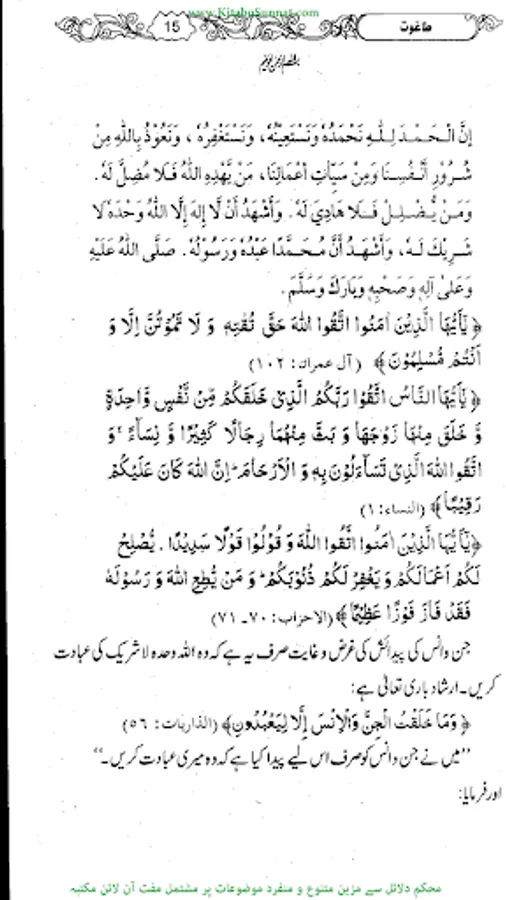 www.KitaboSunnat.com
15
طاغوت
إِنَّ الْحَمْدَ لِلّٰهِ نَحْمَدُهٗ وَنَسْتَعِيْنُهٗ، وَنَسْتَغْفِرُهٗ، وَنَعُوْذُ بِاللّٰهِ مِنْ
شُرُوْرِ أَنْفُسِنَا وَمِنْ سَيِّاٰتِ أَعْمَالِنَا، مَنْ يَّهْدِهِ اللّٰهُ فَلَا مُضِلَّ لَهٗ.
وَمَنْ يُّضْلِلْ فَلَا هَادِيَ لَهٗ. وَأَشْهَدُ أَنْ لَّا إِلٰهَ إِلَّا اللّٰهُ وَحْدَهٗ لَا
شَرِيْكَ لَهٗ، وَأَشْهَدُ أَنَّ مُحَمَّدًا عَبْدُهٗ وَرَسُوْلُهٗ. صَلَّى اللّٰهُ عَلَيْهِ
وَعَلىٰ آلِهٖ وَصَحْبِهٖ وَبَارَكَ وَسَلَّمَ.
﴿يٰۤاَيُّهَا الَّذِيْنَ اٰمَنُوا اتَّقُوا اللّٰهَ حَقَّ تُقٰتِهٖ وَ لَا تَمُوْتُنَّ اِلَّا وَ
اَنْتُمْ مُّسْلِمُوْنَ﴾ (آل عمران: ١٠٢)
﴿يٰۤاَيُّهَا النَّاسُ اتَّقُوْا رَبَّكُمُ الَّذِيْ خَلَقَكُمْ مِّنْ نَّفْسٍ وَّاحِدَةٍ
وَّ خَلَقَ مِنْهَا زَوْجَهَا وَ بَثَّ مِنْهُمَا رِجَالًا كَثِيْرًا وَّ نِسَآءً ۚ وَ
اتَّقُوا اللّٰهَ الَّذِيْ تَسَآءَلُوْنَ بِهٖ وَ الْاَرْحَامَ ؕ اِنَّ اللّٰهَ كَانَ عَلَيْكُمْ
رَقِيْبًا﴾ (النساء: ١)
﴿يٰۤاَيُّهَا الَّذِيْنَ اٰمَنُوا اتَّقُوا اللّٰهَ وَ قُوْلُوْا قَوْلًا سَدِيْدًا. يُّصْلِحْ
لَكُمْ اَعْمَالَكُمْ وَ يَغْفِرْ لَكُمْ ذُنُوْبَكُمْ ؕ وَ مَنْ يُّطِعِ اللّٰهَ وَ رَسُوْلَهٗ
فَقَدْ فَازَ فَوْزًا عَظِيْمًا﴾ (الاحزاب: ٧٠۔٧١)
جن وانس کی پیدائش کی غرض وغایت صرف یہ ہے کہ وہ اللہ وحدہ لا شریک کی عبادت
کریں۔ ارشاد باری تعالیٰ ہے:
﴿وَمَا خَلَقْتُ الْجِنَّ وَالْاِنْسَ اِلَّا لِيَعْبُدُوْنِ﴾ (الذاريات: ٥٦)
”میں نے جن وانس کو صرف اس لیے پیدا کیا ہے کہ وہ میری عبادت کریں۔“
اور فرمایا:
محکم دلائل سے مزین متنوع و منفرد موضوعات پر مشتمل مفت آن لائن مکتبہ